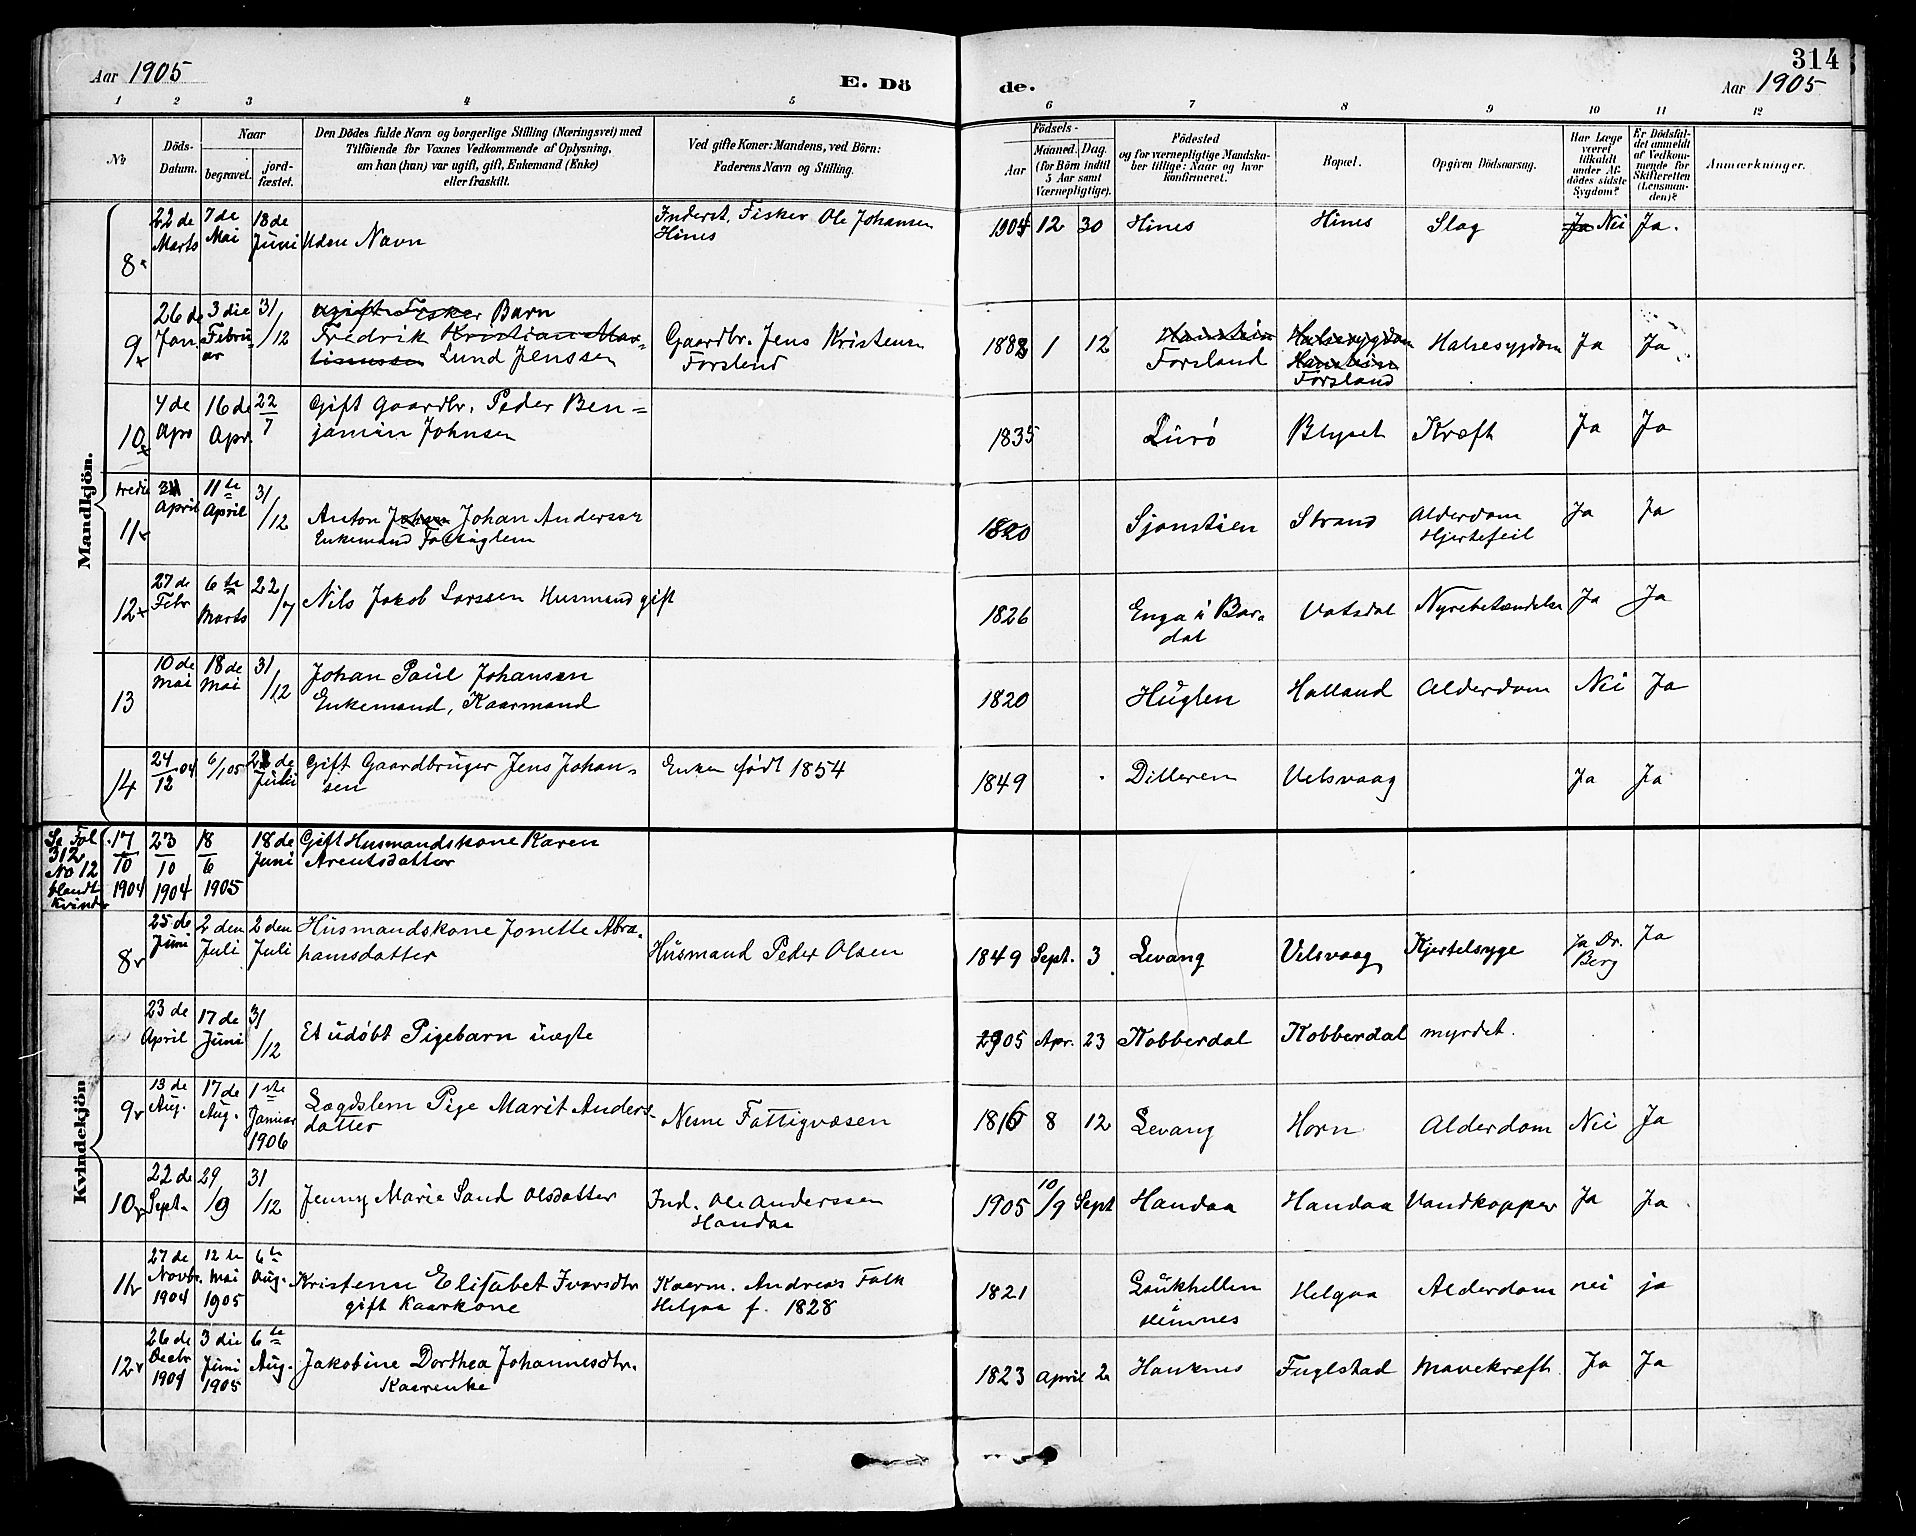 Aar 1905
E. Dö
de.
314
Aar 1905
1 2 3 4 5 6 7 8 9 10 11 12
No
Döds-
Datum.
Naar
begravet.
jord-
fæstet.
Den Dödes fulde Navn og borgerlige Stilling (Næringsvei) med
Tilföiende for Voxnes Vedkommende af Oplysning,
om han (hun) var ugift, gift, Enkemand (Enke)
eller fraskilt.
Ved gifte Koner: Mandens, ved Börn:
Faderens Navn og Stilling.
Födsels-
Aar
Maaned. Dag.
(for Börn indtil
5 Aar samt
Værnepligtige).
Födested
og for værnepligtige Mandska-
ber tillige: Naar og hvor
konfirmeret.
Bopæl.
Opgiven Dödsaarsag.
Har Læge
været
tilkaldt
under Af-
dödes sidste
Sygdom?
Er Dödsfal-
det anmeldt
af Vedkom-
mende for
Skifteretten
(Lensman-
den)?
Anmærkninger.
Mandkjön.
8
22 de
Marts
7 de
Mai
18 de
Juni
Uden Navn
Inderst. Fisker Ole Johansen
Hines
1904 12 30 Hines Hines Slag Ja Nei Ja.
9
26 de
Jan
3 die
Febru
ar
31/12
ugift Fisker Barn
Fredrik Kristian Mar-
tinussen Lund Jenssen
Gaardbr. Jens Kristensen
Forslend
1888 1 12
Forsland
Halsesygdom
Forsland
Halsesygdom Ja Ja
10
4 de
Apr
16 de
Apr.
22/7
Gift Gaardbr. Peder Ben=
jamin Johnsen
1835 Lurö Blyset Kræft Ja Ja
11
April
11 te
April
31/12
Anton Johan Johan Anderssen
Enkemand Fattiglem
1820 Sjonstien Strand
Alderdom
Hjertefeil
Ja Ja
12
27 de
Febr
6 te
Marts
22/7
Nils Jakob Larssen Husmand gift
1826
Enga i Bar-
dal
Vatsdal Nyrebetændelse Ja Ja
13
10 de
Mai
18 de
Mai
31/12
Johan Paul Johansen
Enkemand, Kaarmand
1820 Huglen Halland Alderdom Nei Ja
14
24/12 04
6/1 05
de
Juli
Gift Gaardbruger Jens Johan-
sen
Enken født 1854
1849 Dilleren Velsvaag Ja Ja
Kvindekjön
Se Fol
312
No 12
blandt
Kvinder
17/10
1904
23/10
1904
18/6
1905
18 de
Juni
Gift Husmandskone Karen
Arentsdatter
8
25 de
Juni
2 den
Juli
2 den
Juli
Husmandskone Jonette Abra-
hamsdatter
Husmand Peder Olsen
1849 Sept. 3 Levang Velsvaag Kjertelsyge
Ja Dr.
Berg
Ja
23 de
April
17 de
Juni
31/12
Et udöbt Pigebarn uægte
1905 Apr. 23 Kobberdal Kobberdal myrdet.
9
13 de
Aug.
17 de
Aug.
1 ste
Januar
1906
Lægdslem Pige Marit Anders-
datter
Nesne Fattigvæsen
1816 8 12 Levang Horn Alderdom Nei Ja
10
22 de
Sept.
29/9
31/12
Jenny Marie Sand Olsdatter
Ind. Ole Anderssen
Handaa
1905 10/9 Sept Handaa Handaa Vandkopper Ja Ja
11
27 de
Novbr.
1904
12 te
Mai
1905
6 te
Aug.
Kristense Elisabet Ivarsdtr
gift Kaarkone
Kaarm. Andreas Falk
Helgaa f. 1828
1821
Laukhellen
i
Hemnes
Helgaa Alderdom nei ja
12
26 de
Decbr
1904
3 die
Juni
1905
6 te
Aug.
Jakobine Dorthea Johannesdtr.
Kaarenke
1823 April 2 Hauknes Fuglstad Mavekræft Ja Ja